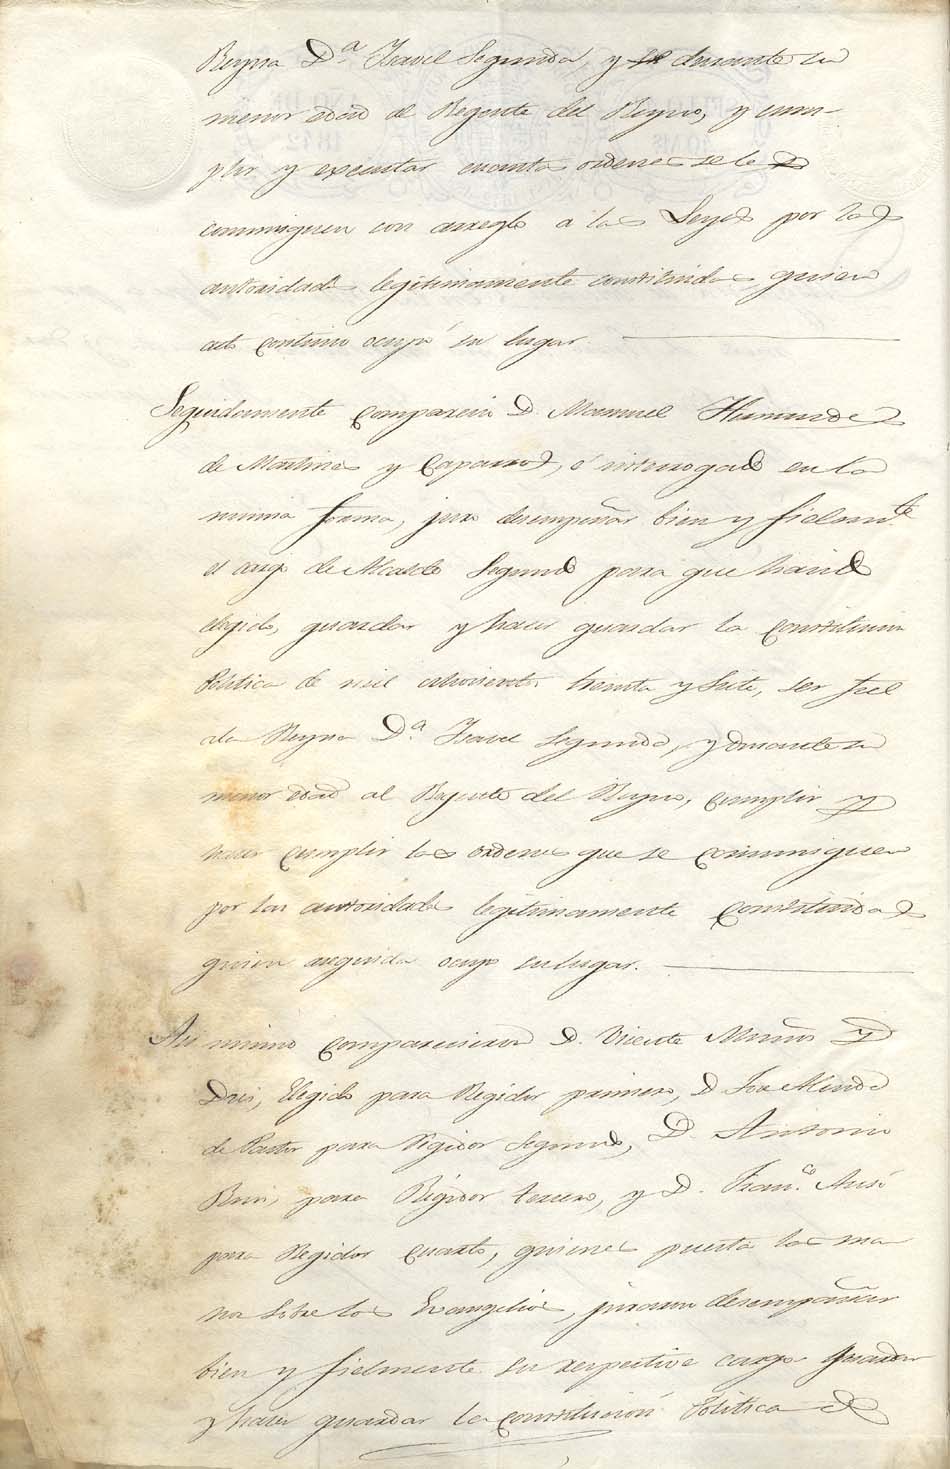 Reyna D.ª Isavel Segunda, y durante su
menor edad de Regente del Reyno, y cum-
plir y executar cuanta ordenes se le
comuniquen con arreglo a las Leyes por las
autoridades legitimamente constituidas, quien
acto continuo ocupó su lugar.
Seguidamente comparecio D. Manuel Hernandez
de Martinez y Caparros, é interrogado en la
misma forma, juro desempeñar bien y fielam.te
el cargo de Alcalde Segundo para que ha sido
elegido, guardar y hacer guardar la Constitucion
Politica de mil ochocientos treinta y siete, ser fiel
a la Reyna D.ª Isavel Segunda, y durante su
menor edad al Regente del Reyno, cumplir y
hacer cumplir las ordenes que se comuniquen
por las autoridades legitimamente constituidas
quien enseguida ocupo su lugar.
Asi mismo comparecieron D. Vicente Muños y
Dris, Elegido para Regidor primero, D. Jose Mende
de Pastor para Regidor Segundo, D. Antonio
para Regidor tercero, y D. Fran.co
para Regidor Cuarto, quienes puesta las ma
nos sobre los Evangelios, juraron desempeñar
bien y fielmente su respectivo cargo guardar
y hacer guardar la Constitucion Politica de